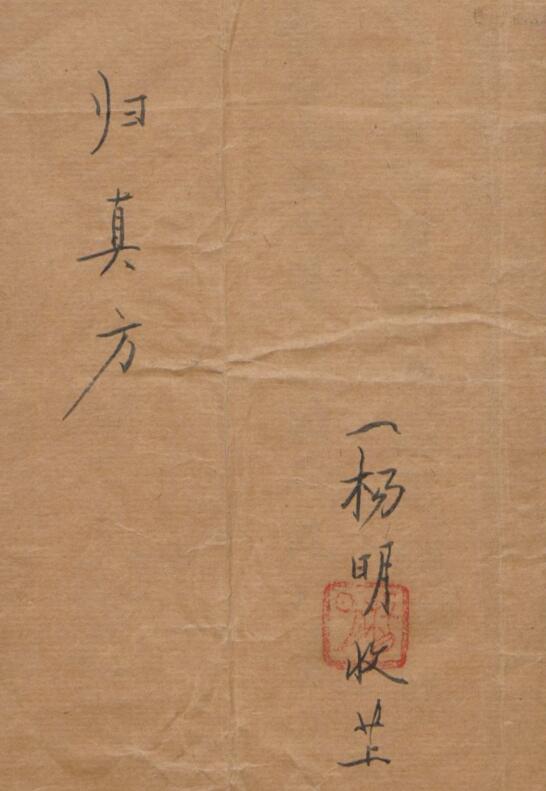 归真方
一杨明收